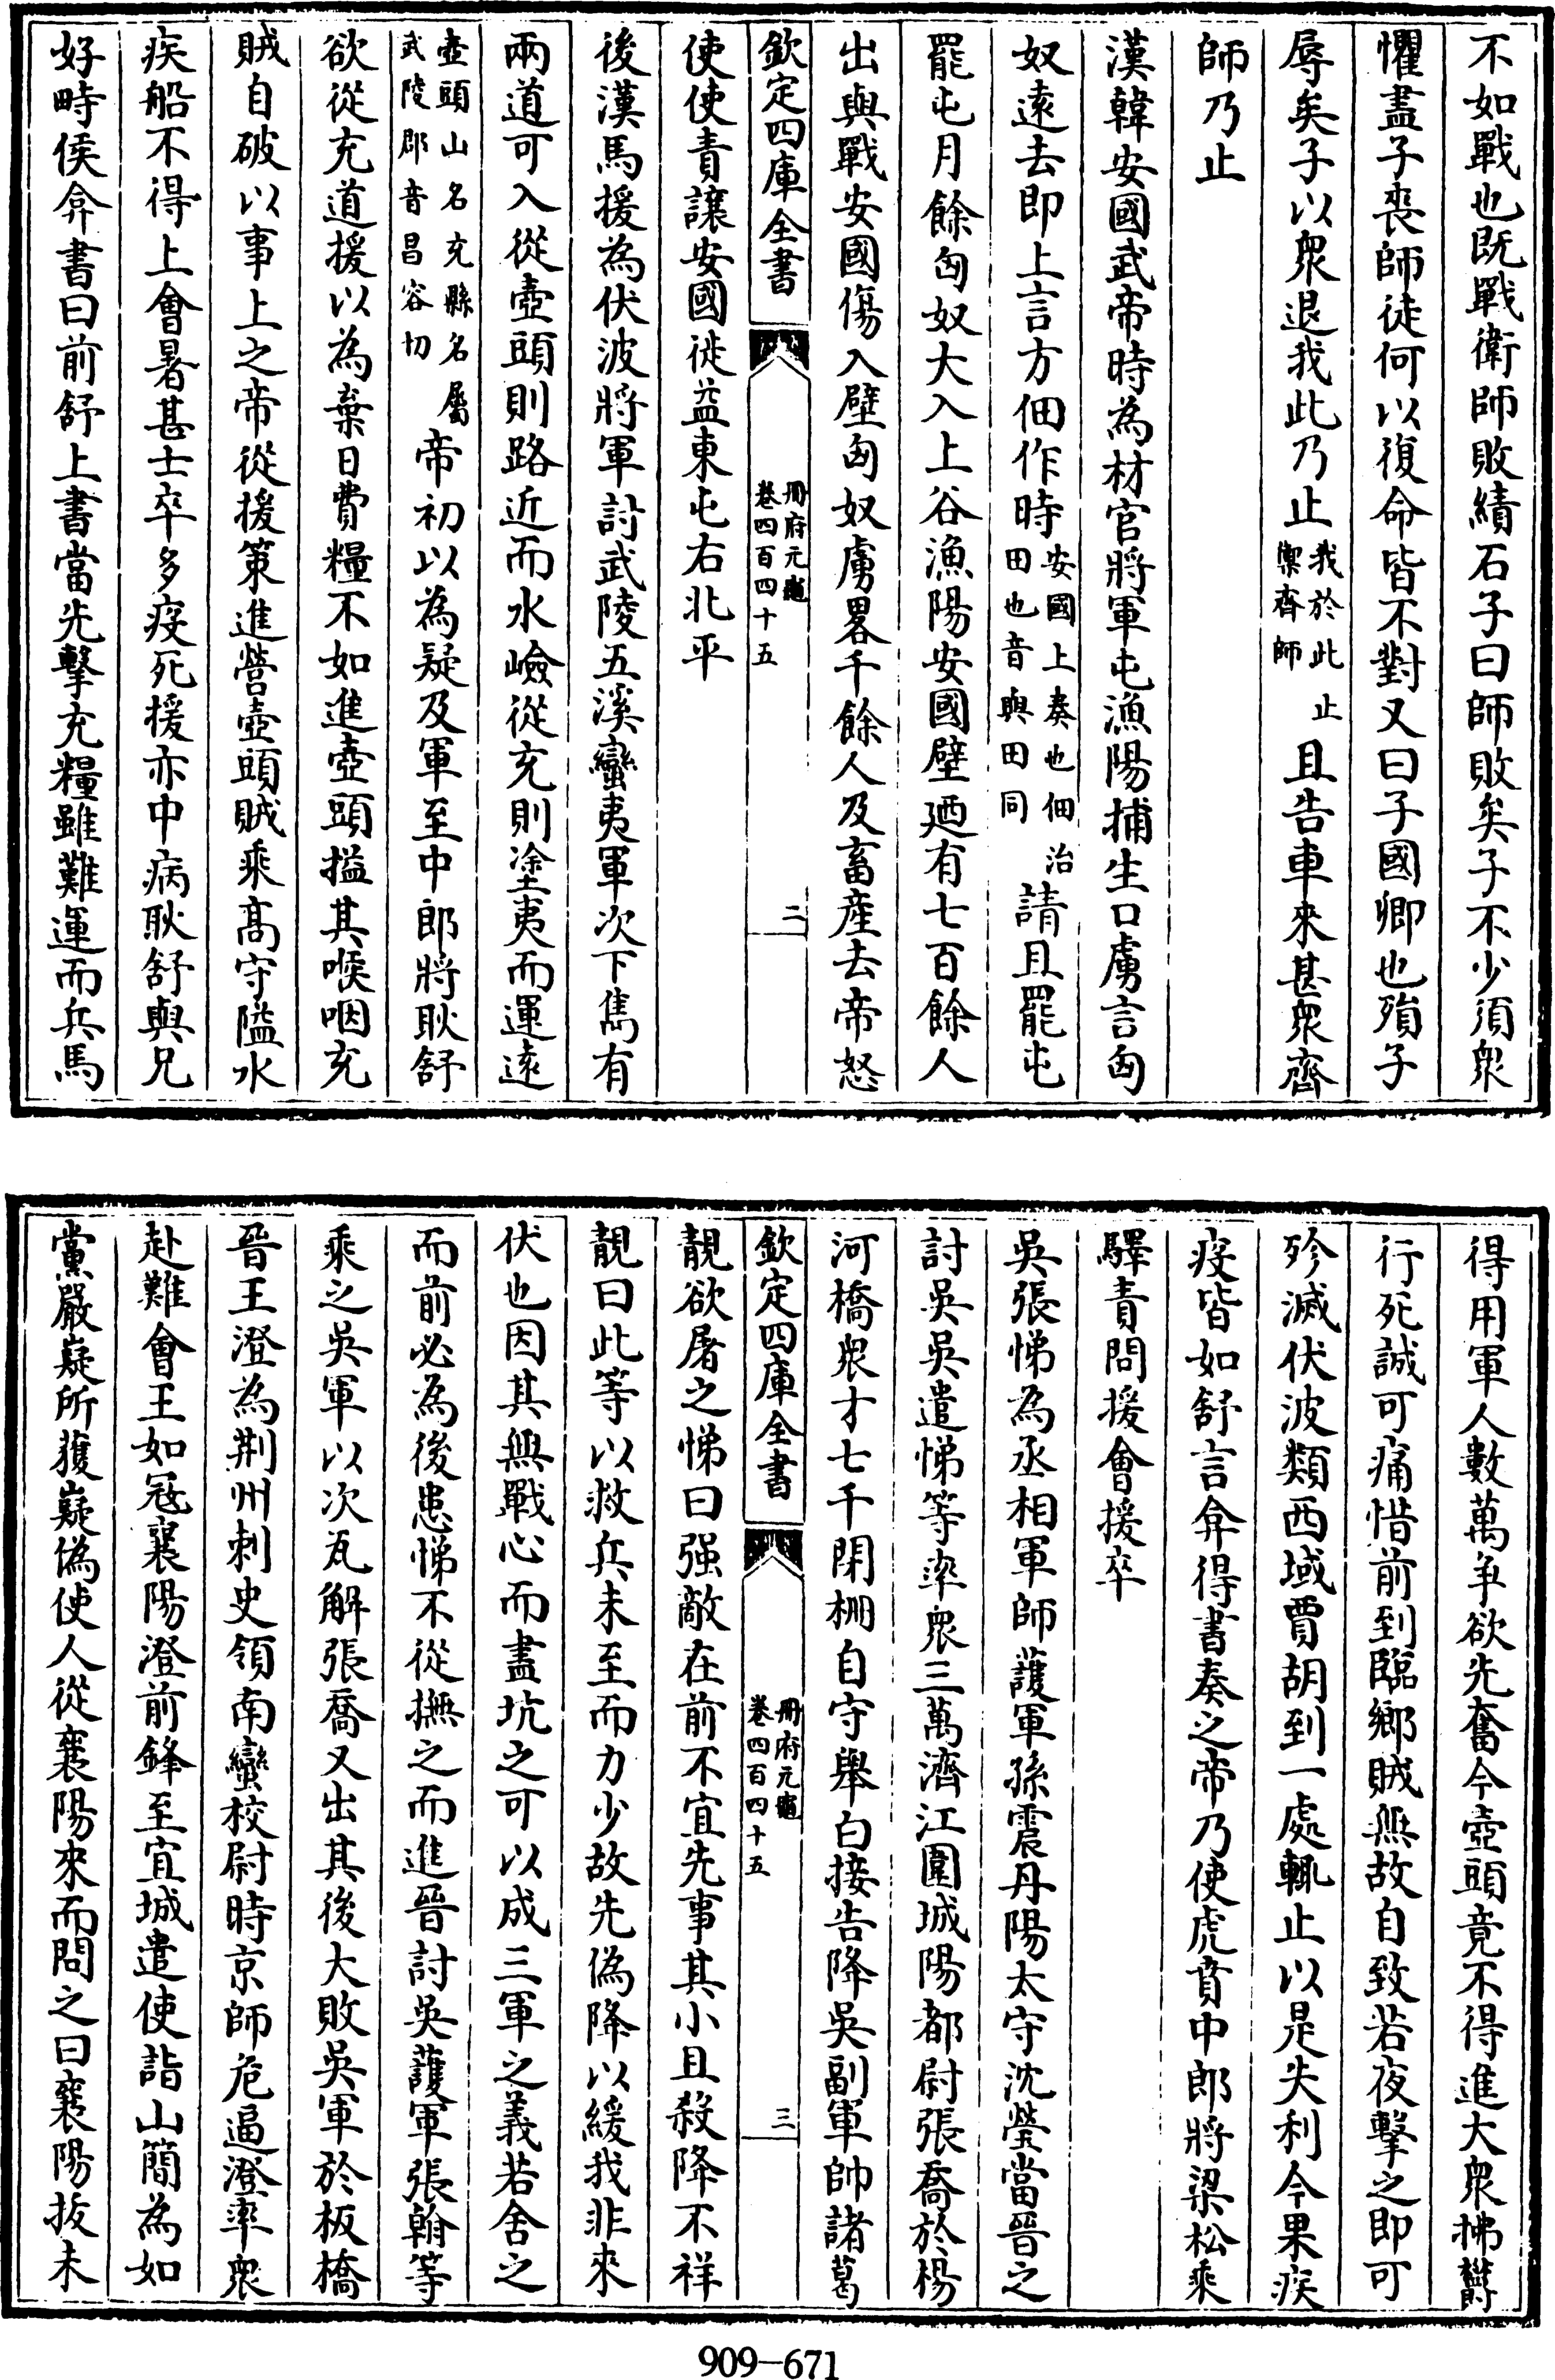 不如戰也既戰衛師敗績石子曰師敗矣子不少須衆
懼盡子喪師徒何以復命皆不對又曰子國卿也殞子
辱矣子以衆退我此乃止我於此止禦齊師且告車來甚衆齊
師乃止
漢韓安國武帝時為材官將軍屯漁陽捕生口虜言匈
奴遠去即上言方佃作時安國上奏也佃治田也音與田同請且罷屯
罷屯月餘匈奴大入上谷漁陽安國壁廼有七百餘人
出與戰安國傷入壁匈奴虜畧千餘人及畜產去帝怒
欽定四庫全書
冊府元龜
卷四百四十五
二
使使責讓安國徙益東屯右北平
後漢馬援為伏波將軍討武陵五溪蠻夷軍次下雋有
兩道可入從壺頭則路近而水嶮從充則塗夷而運遠
壺頭山名充縣名屬武陵郡音昌容切帝初以為疑及軍至中郎將耿舒
欲從充道援以為棄日費糧不如進壺頭搤其喉咽充
賊自破以事上之帝從援策進營壺頭賊乘髙守隘水
疾船不得上會暑甚士卒多疫死援亦中病耿舒與兄
好畤侯弇書曰前舒上書當先擊充糧雖難運而兵馬
得用軍人數萬争欲先奮今壺頭竟不得進大衆怫欝
行死誠可痛惜前到臨鄉賊無故自致若夜擊之即可
殄滅伏波類西域賈胡到一處輒止以是失利今果疾
疫皆如舒言弇得書奏之帝乃使虎賁中郎將梁松乘
驛責問援會援卒
吳張悌為丞相軍師護軍孫震丹陽太守沈瑩當晉之
討吳吳遣悌等率衆三萬濟江圍城陽都尉張喬於楊
河橋衆才七千閉栅自守舉白接告降吳副軍帥諸葛
欽定四庫全書
冊府元龜
卷四百四十五
三
靚欲屠之悌曰强敵在前不宜先事其小且殺降不祥
靚曰此等以救兵未至而力少故先偽降以緩我非來
伏也因其無戰心而盡坑之可以成三軍之義若舍之
而前必為後患悌不從撫之而進晉討吳護軍張翰等
乘之吳軍以次瓦解張喬又出其後大敗吳軍於板橋
晉王澄為荆州刺史領南蠻校尉時京師危逼澄率衆
赴難會王如冦襄陽澄前鋒至宜城遣使詣山簡為如
黨嚴嶷所獲嶷偽使人從襄陽來而問之曰襄陽拔未
909-671